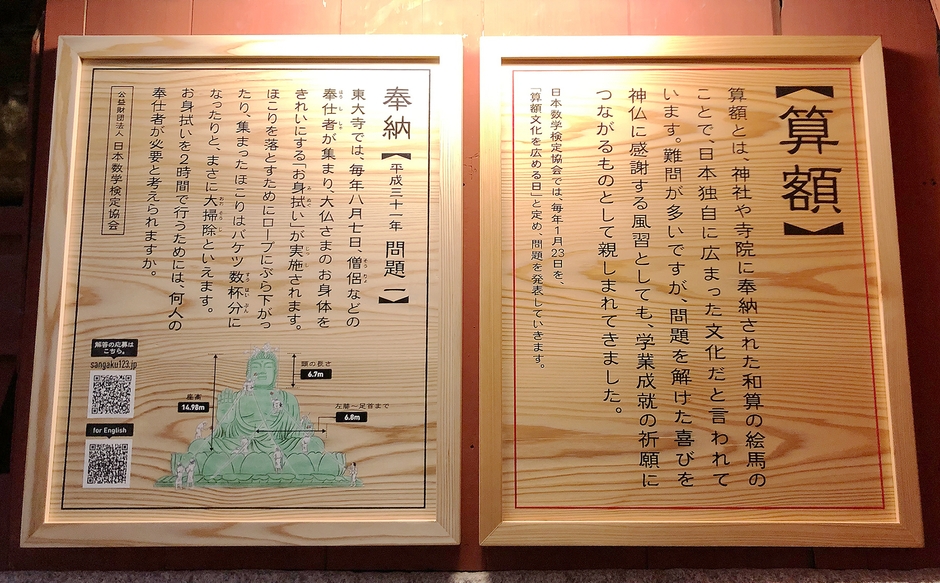 【算額】
算額とは、神社や寺院に奉納された和算の絵馬の
ことで、日本独自に広まった文化だと言われて
います。難問が多いですが、問題を解けた喜びを
神仏に感謝する風習としても、学業成就の祈願に
つながるものとして親しまれてきました。
日本数学検定協会では、毎年1月23日を、
「算額文化を広める日」と定め、問題を発表していきます。
奉納【平成三十一年 問題一】
東大寺では、毎年八月七日、僧侶などの
奉仕者が集まり、大仏さまのお身体を
きれいにする「お身拭い」が実施されます。
ほこりを落とすためにロープにぶら下がっ
たり、集まったほこりはバケツ数杯分に
なったりと、まさに大掃除といえます。
お身拭いを2時間で行うためには、何人の
奉仕者が必要と考えられますか。
公益財団法人 日本数学検定協会
頭の長さ
6.7m
座高
14.98m
左膝〜足首まで
6.8m
解答の応募は
こちら。
sangaku123.jp
for English